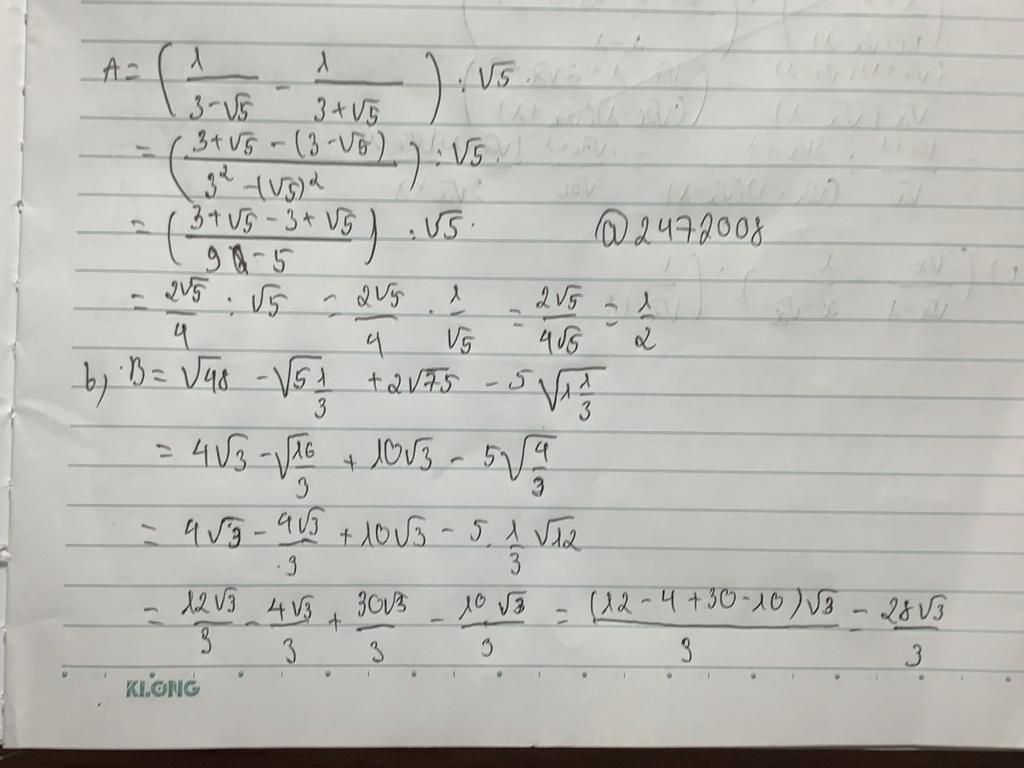 A = ( 1/(3-√5) - 1/(3+√5) ) : √5.
= ( (3+√5 - (3-√5))/(3² - (√5)²) ) : √5.
= ( (3+√5-3+√5)/(9-5) ) : √5. @2472008
= 2√5/4 : √5 = 2√5/4 . 1/√5 = 2√5/4√5 = 1/2
b, B = √48 - √(5 1/3) + 2√75 - 5√(1 1/3)
= 4√3 - √(16/3) + 10√3 - 5√(4/3)
= 4√3 - 4√3/3 + 10√3 - 5. 1/3 √12
= 12√3/3 - 4√3/3 + 30√3/3 - 10√3/3 = (12-4+30-10)√3/3 = 28√3/3
KLONG